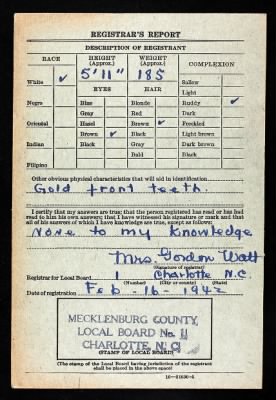 REGISTRAR'S REPORT
DESCRIPTION OF REGISTRANT
RACE HEIGHT (Approx.) WEIGHT (Approx.) COMPLEXION
5'11" 185
White ✓ Sallow
EYES HAIR Light
Negro Blue Blonde Ruddy ✓
Gray Red Dark
Oriental Hazel Brown ✓ Freckled
Brown ✓ Black Light brown
Indian Black Gray Dark brown
Bald Black
Filipino
Other obvious physical characteristics that will aid in identification
Gold front teeth.
I certify that my answers are true; that the person registered has read or has had
read to him his own answers; that I have witnessed his signature or mark and that
all of his answers of which I have knowledge are true, except as follows:
None to my knowledge
Mrs. Gordon Watt
(Signature of registrar)
Registrar for Local Board 1 Charlotte N.C.
(Number) (City or county) (State)
Date of registration Feb - 16 - 1942
MECKLENBURG COUNTY,
LOCAL BOARD No. 11
CHARLOTTE, N. C.
(STAMP OF LOCAL BOARD)
(The stamp of the Local Board having jurisdiction of the registrant
shall be placed in the above space)
16—21630-2